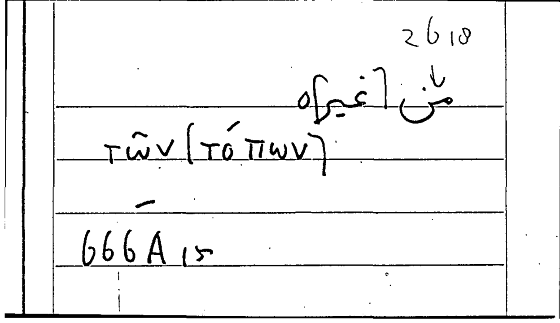 2618
من [غير]ه
τῶν [τόπων]
–
666A 15